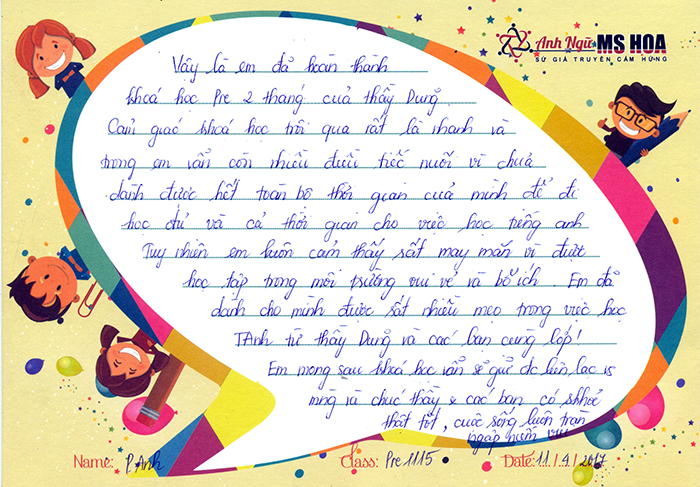 Anh Ngữ MS HOA
SỨ GIẢ TRUYỀN CẢM HỨNG
Vậy là em đã hoàn thành
khoá học Pre 2 tháng của thầy Dung.
Cảm giác khoá học trôi qua rất là nhanh và
trong em vẫn còn nhiều điều tiếc nuối vì chưa
dành được hết toàn bộ thời gian của mình để đi
học đủ và cả thời gian cho việc học tiếng anh
Tuy nhiên em luôn cảm thấy rất may mắn vì được
học tập trong môi trường vui vẻ và bổ ích. Em đã
dành cho mình được rất nhiều mẹo trong việc học
TAnh từ thầy Dung và các bạn cùng lớp!
Em mong sau khoá học vẫn sẽ giữ đc liên lạc vs
mng và chúc thầy & các bạn có skhoẻ
thật tốt, cuộc sống luôn tràn
ngập niềm vui
Name: P.Anh Class: Pre 1115 Date: 11 / 4 / 2017